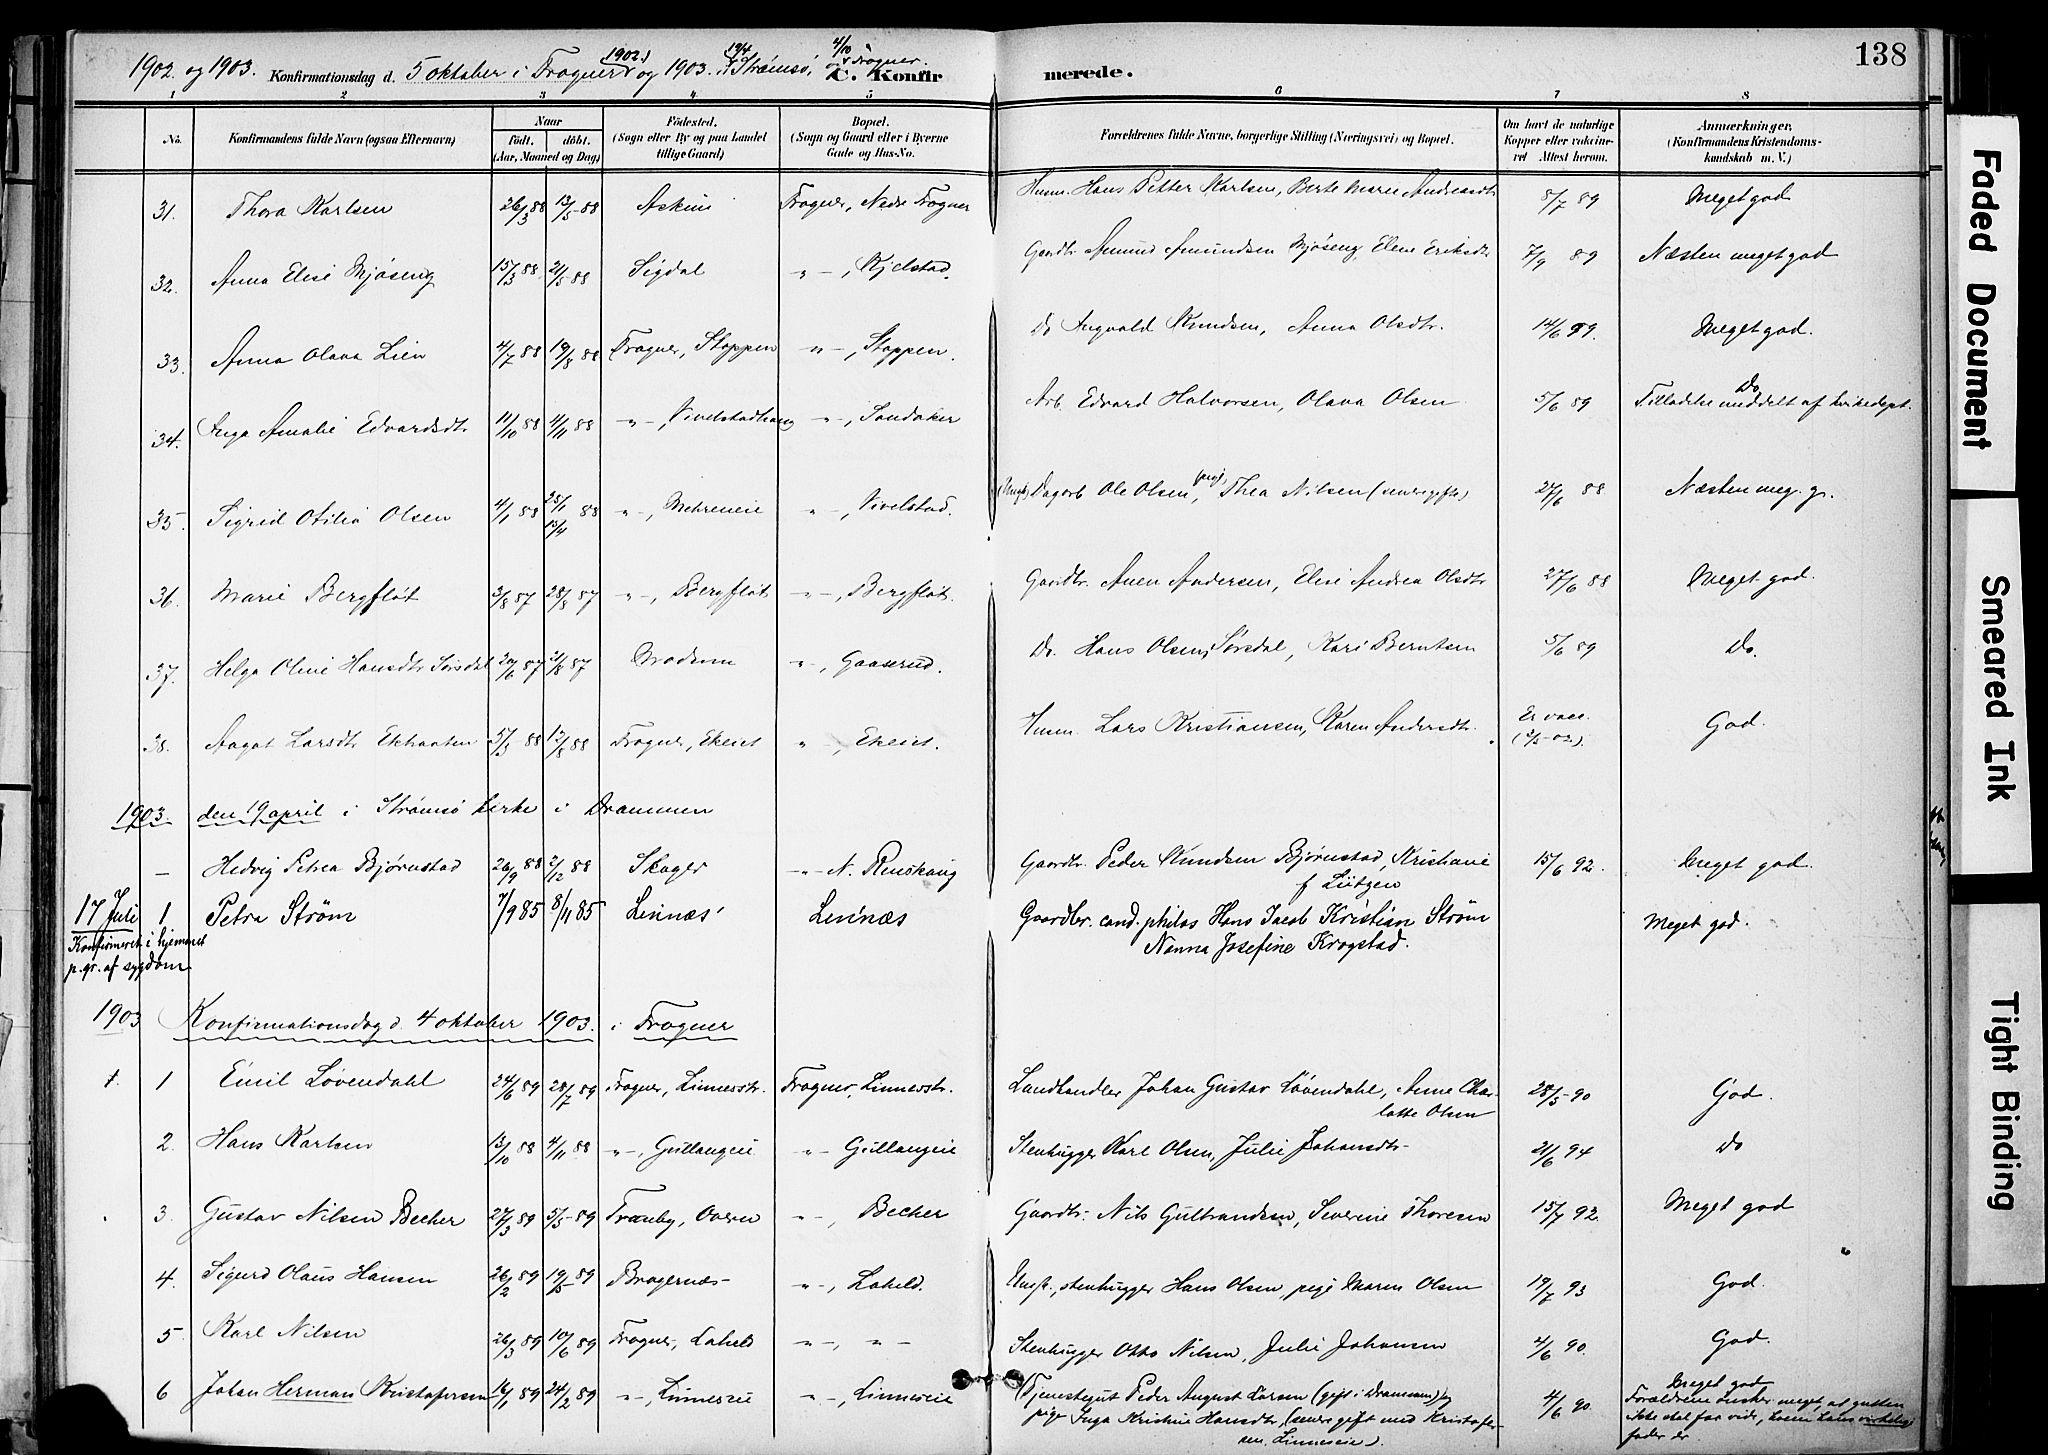 138
1902 og 1903. Konfirmationsdag d. 5 oktober i Frogner 1902) og 1903. 19/4 i Strømsø, 4/10 og i Frogner. C. Konfirmerede.
1 2 3 4 5 6 7 8
No. Konfirmandens fulde Navn (ogsaa Efternavn) Naar Födt. döbt. (Aar, Maaned og Dag) Födested. (Sogn eller By og paa Landet tillige Gaard) Bopæl. (Sogn og Gaard eller i Byerne Gade og Hus-No. Forældrenes fulde Navne, borgerlige Stilling (Næringsvei) og Bopæl. Om havt de naturlige Kopper eller vakcineret Attest herom. Anmærkninger. (Konfirmandens Kristendomskundskab m. V.)
31. Thora Karlsen 26/3 88 13/5-88 Askim Frogner, Nedre Frogner Husm. Hans Petter Karlsen, Berte Marie Andreasdtr 8/7 89 Meget god
32. Anna Elise Mjøseng 15/3 88. 21/5 88 Sigdal " -, Kjelstad. Gaardbr. Amund Amundsen Mjøseng, Elene Eriksdtr 7/9 89 Næsten meget god
33. Anna Olava Lien 4/7 88 19/8 88 Frogner, Stoppen " -, Stoppen. Do Ingvald Knudsen, Anna Olsdtr. 14/6 89. Meget god.
34. Inga Amalie Edvardsdtr 11/10 88 4/11 88 " -, Vivelstadhaug " -, Sandaker Arb. Edvard Halvorsen, Olava Olsen 5/6 89 Do Tilladelse meddelt af kirkedept.
35. Sigrid Otilie Olsen 4/1 88 25/1 88 13/4 " -, Mehreneie " -, Vivelstad. (Ungk) Dagarb Ole Olsen, pige Thea Nilsen (senere gifte) 27/6 88 Næsten meg. g.
36. Marie Bergfløt 3/8 87 28/8 87 " -, Bergfløt " -, Bergfløt. Gaardbr. Anen Andersen, Elise Andrea Olsdtr 27/6 88 Meget god.
37. Helga Oline Hansdtr Sørsdal 20/6 87 21/8 87 Modum " -, Gaaserud. Do. Hans Olsen Sørsdal, Kari Berntsen 5/6 89 Do.
38. Aagot Larsdtr Ekhaaten 5/3 88 12/8 88 Frogner, Ekeiet " -, Ekeiet. Husm. Lars Kristiansen, Karen Andersdtr. Er vacc. (3/5-02). God.
1903. den 19 april i Strømsø kirke i Drammen
- Hedvig Petrea Bjørnstad 26/9 88 2/12 88 Skoger " - N. Renskaug Gaardbr. Peder Knudsen Bjørnstad, Kristiane f Lützen 15/6 92. Meget god.
17 Juli 1 Petra Strøm 7/9 85 8/11 85 Linnæs Linnæs Gaardbr. cand. philos Hans Jacob Kristian Strøm Nanna Josefine Krogstad. Meget god.
Konfirmeret i hjemmet
p. gr. af sygdom
1903 Konfirmationsdag d. 4 oktober 1903. i Frogner
1 Emil Løvendahl 24/6 89 28/7 89 Frogner, Linnesstr. Frogner, Linnesstr. Landhandler Johan Gustav Løvendahl, Anne Charlotte Olsen 28/5-90 God.
2. Hans Karlsen 13/10 88 4/11 88 " -, Gullaugeie " - Gullaugeie Stenhugger Karl Olsen, Julie Johansdtr- 21/6 94 Do
3. Gustav Nilsen Becher 27/3 89 5/5-89 Tranby, Overn " -, Becher Gaardbr. Nils Gulbrandsen, Severine Thoresen 15/7 92. Meget god
4. Sigurd Olaus Hansen 26/2 89 19/5 89 Bragernæs- " -, Lahell. Ungk., stenhugger Hans Olsen, pige Maren Olsen 19/7 93 God.
5. Karl Nilsen 26/3 89 10/6 89 Frogner, Lahell " -, " - Stenhugger Otto Nilsen, Julie Johansen 4/6 90. God.
6 Johan Herman Kristofersen 16/1 89 24/2 89 " -, Linneseie " -, Linneseie (Tjenestegut Peder August Larsen (gift i Drammen) og pige Inga Kristine Hansdtr, (senere gift med Kristofersen, Linneseie). 4/6 90. Meget god
Forældrene ønsker meget, at gutten
ikke skal faa vide, hvem hans virkelige
fader er.
Faded Document
Smeared Ink
Tight Binding